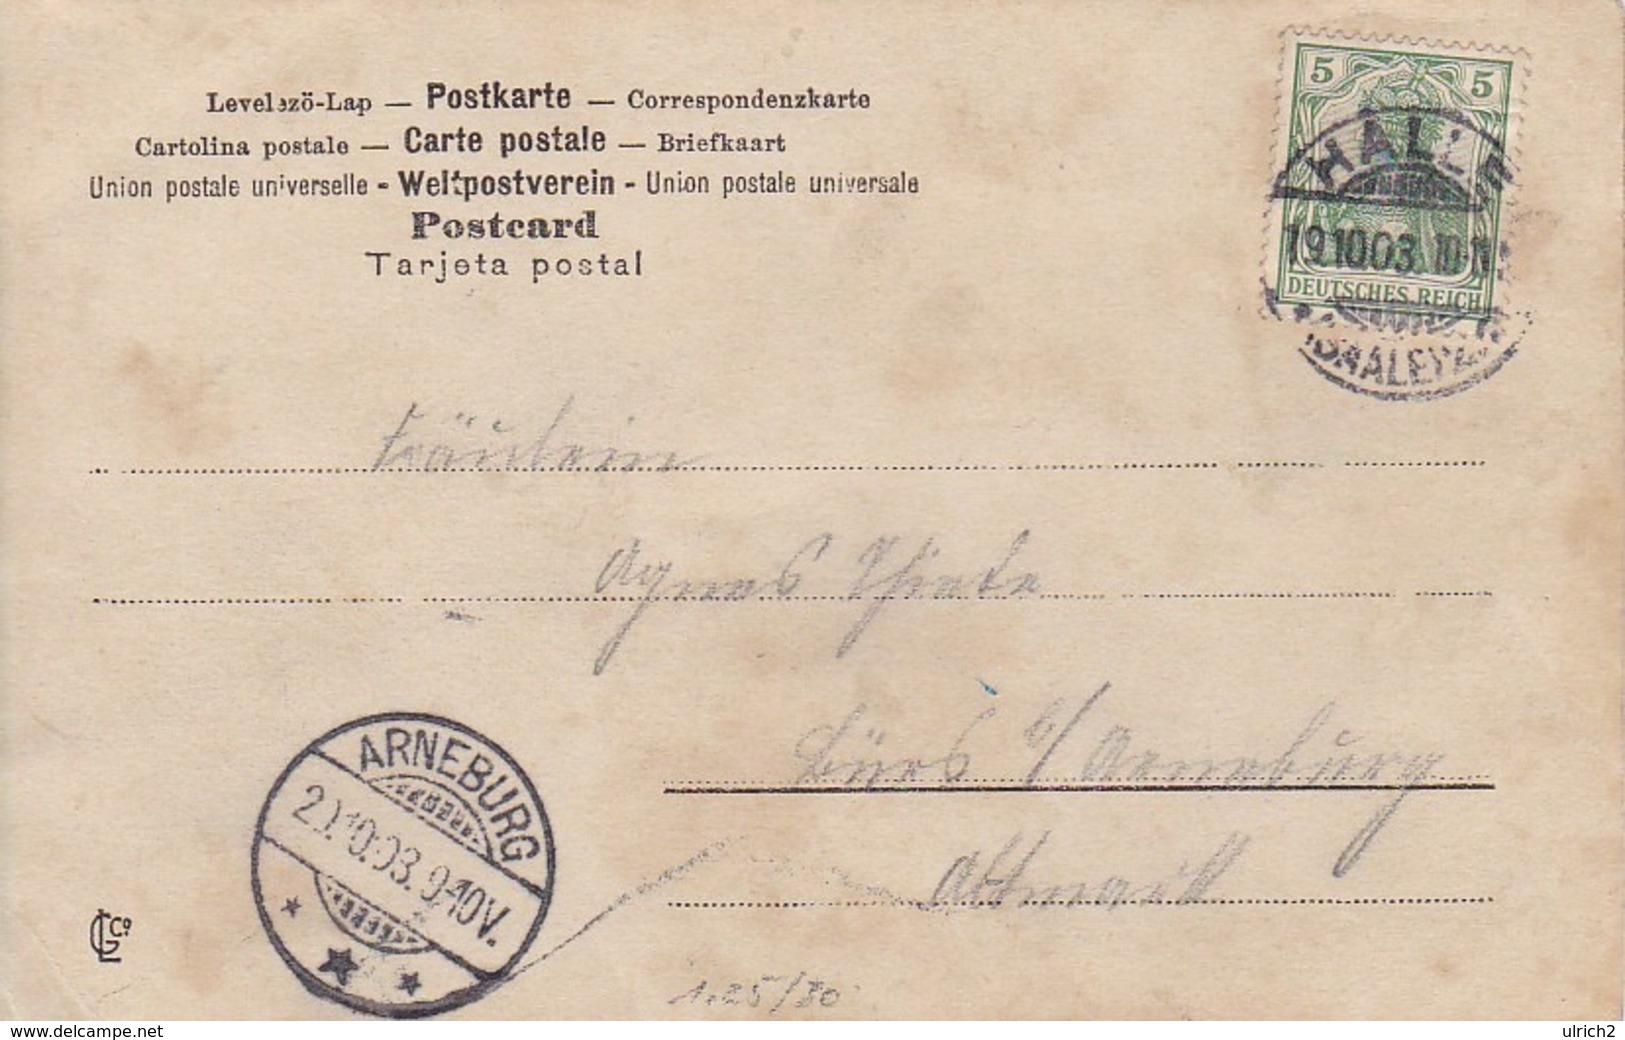 Levelező-Lap — Postkarte — Correspondenzkarte
Cartolina postale — Carte postale — Briefkaart
Union postale universelle - Weltpostverein - Union postale universale
Postcard
Tarjeta postal
5 5
HALLE
19.10.03. 10-11
DEUTSCHES REICH
(SAALE)
Fräulein
Agnes Thiede
Bürs b/ Arneburg
Altmark
ARNEBURG
20.10.03. 9-10V.
LG Co.
1.25/30
www.delcampe.net
ulrich2